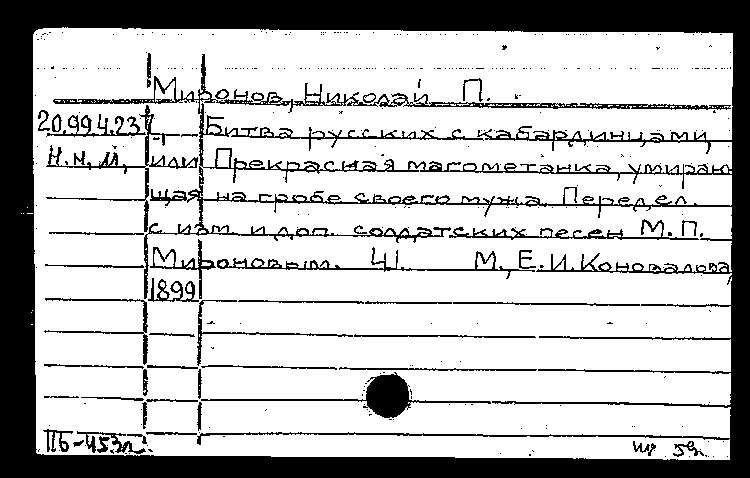 Миронов, Николай П.
20.99.4.237 Битва русских с кабардинцами,
Н.м.И, или Прекрасная магометанка, умираю
щая на гробе своего мужа. Передел.
с изм. и доп. солдатских песен М.П.
Мироновым. Ч.1. М., Е.И.Коновалова,
1899
ПБ-453л